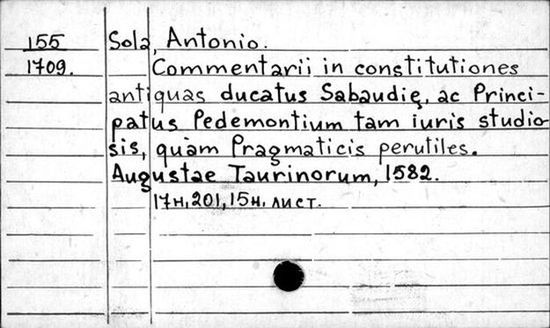 155 Sola, Antonio.
1709. Commentarii in constitutiones
antiquas ducatus Sabaudię, ac Princi-
patus Pedemontium tam iuris studio
sis, quàm Pragmaticis perutiles.
Augustae Taurinorum, 1582.
17н, 201, 15н. лист.